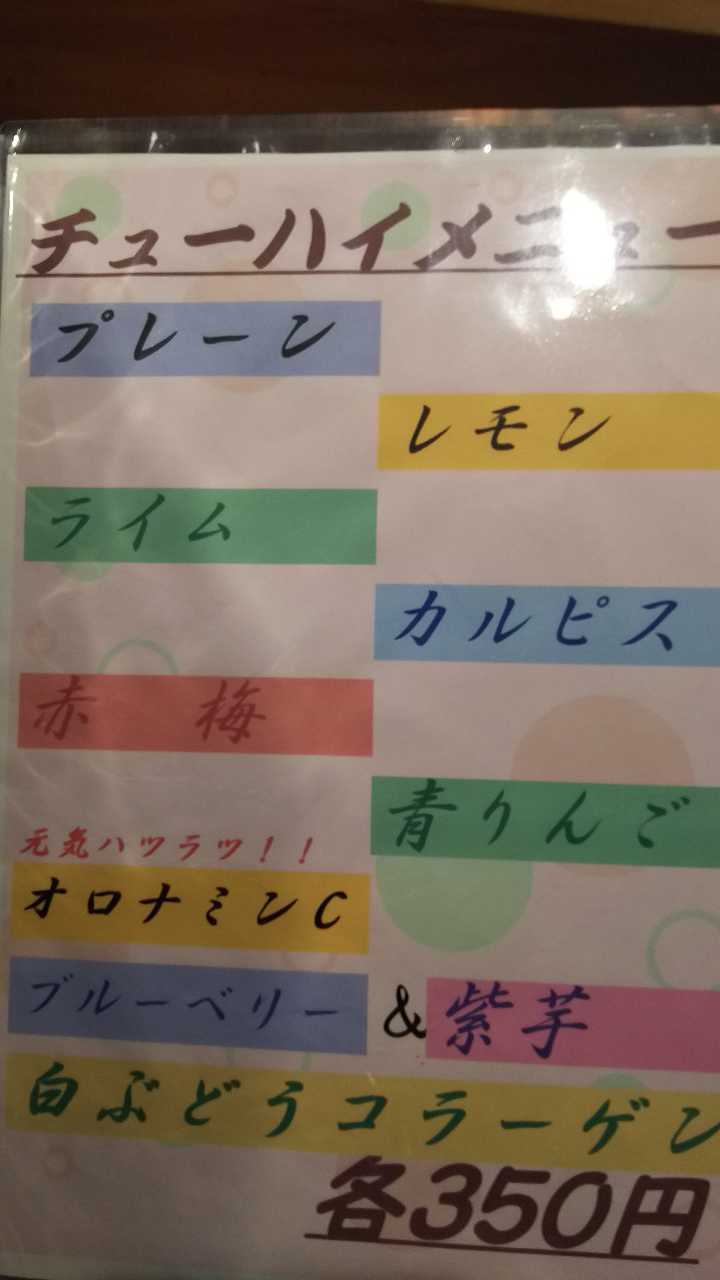 チューハイメニュー
プレーン
レモン
ライム
カルピス
赤 梅
青りんご
元気ハツラツ!!
オロナミンC
ブルーベリー & 紫芋
白ぶどうコラーゲン
各350円